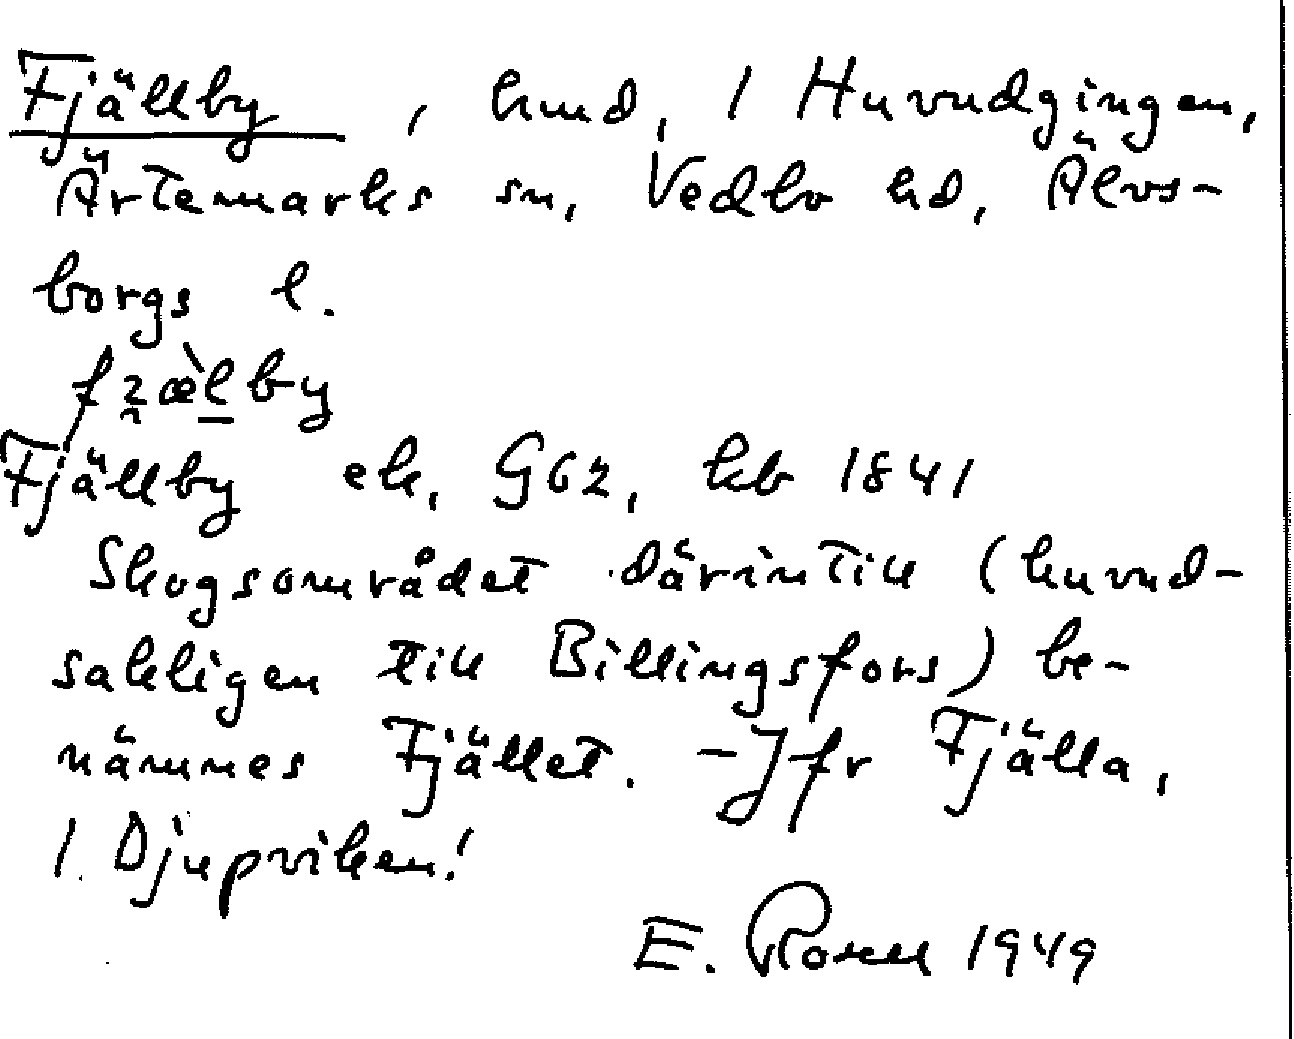 Fjällby, hmd, 1 Huvudgingen,
Ärtemarks sn, Vedbo hd, Älvs-
borgs l.
Fjällby ek, G62, kb 1841
Skogsområdet därintill (huvud-
sakligen till Billingsfors) be-
nämnes Fjället. - Jfr Fjälla,
1 Djupviken!
E. Rosell 1949